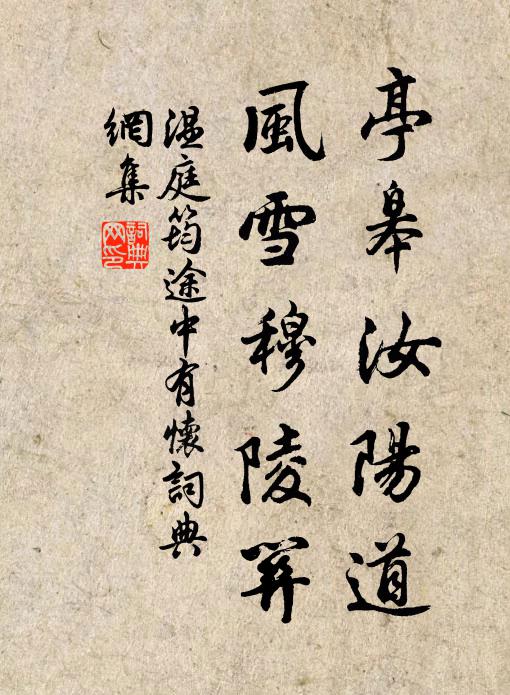 亭皋汝陽道
風雪穆陵關
温庭筠途中有懷詞典
網集
詞典
网印